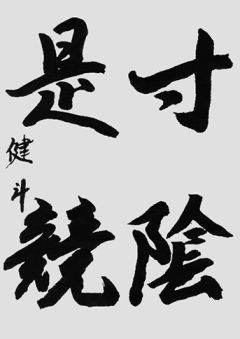 寸陰
是競
健斗